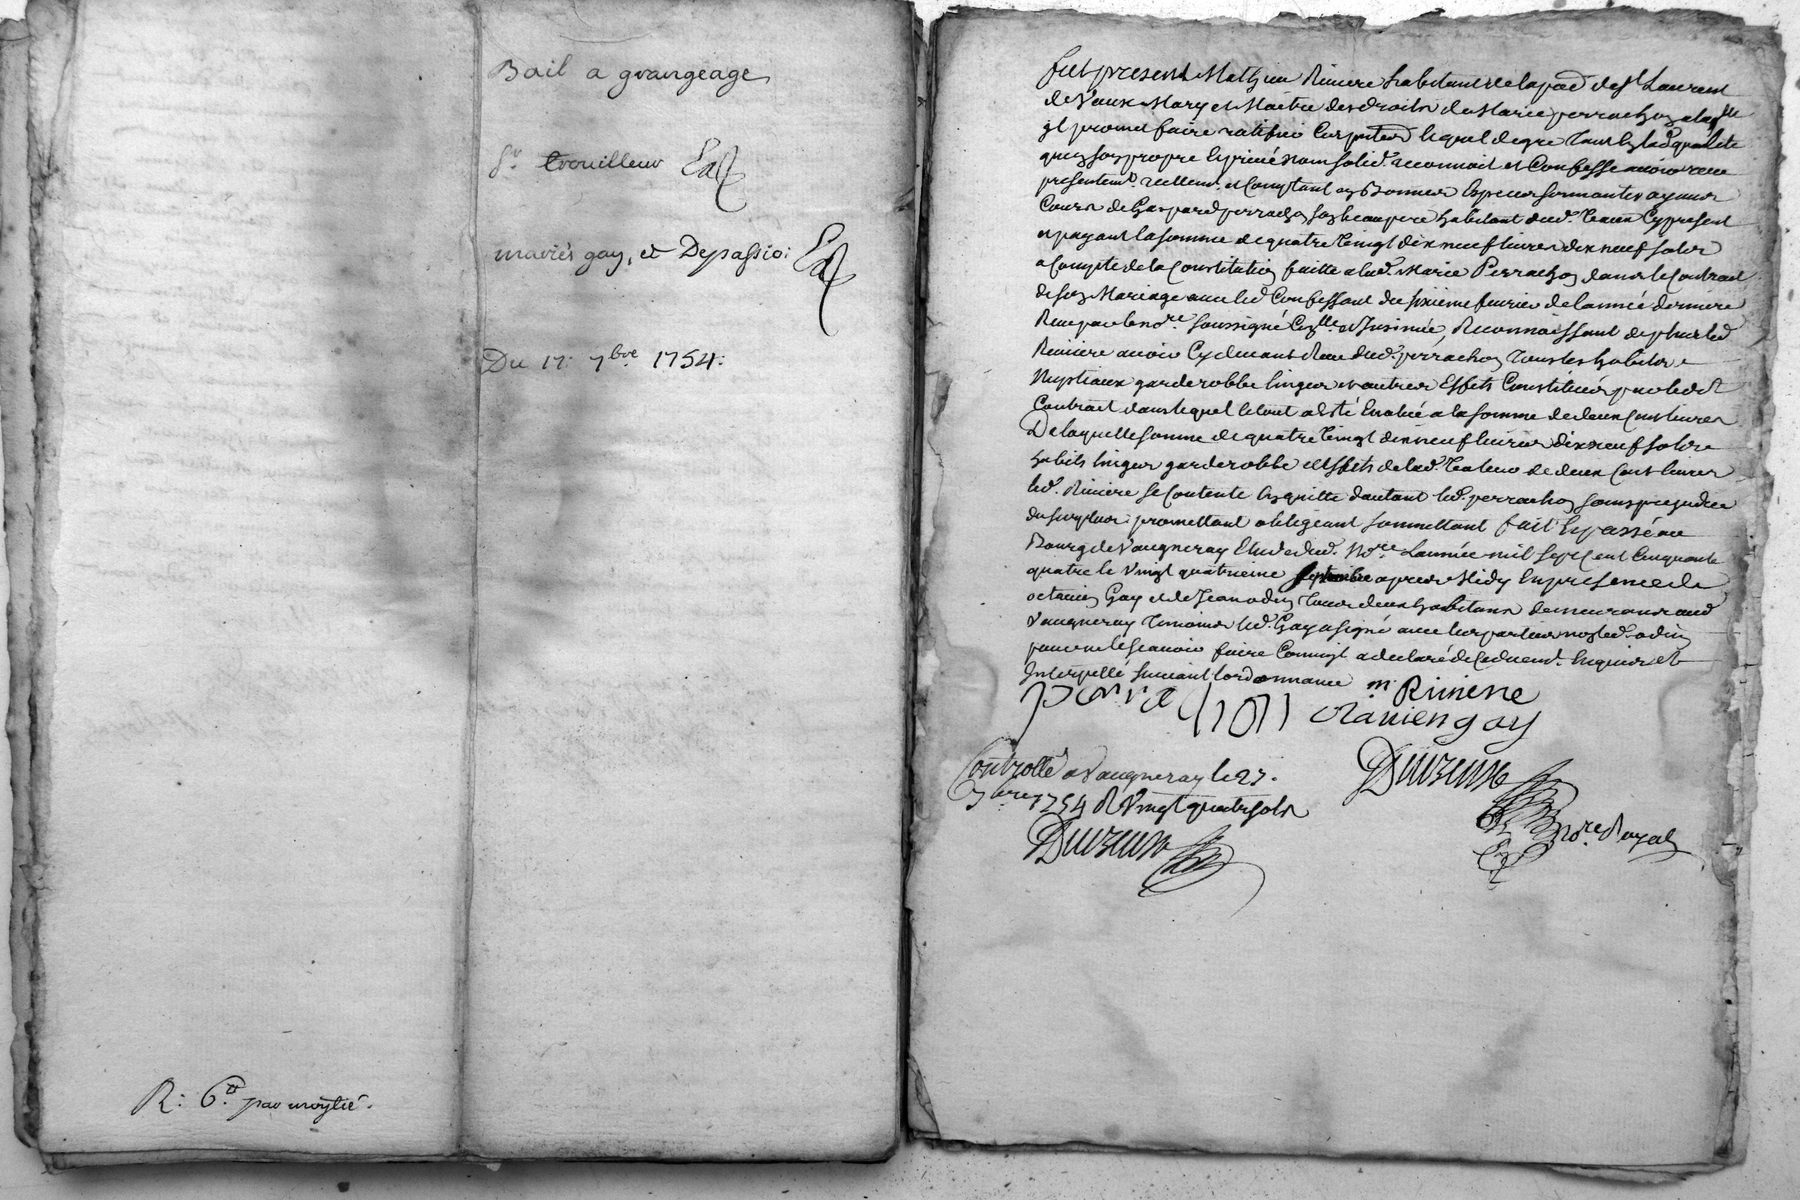 Bail a grangeage
Sr. trouilleur Ext
mariés gay, et Depassio: Ext
Du 17: 7bre 1754:
R: 6# par moytié.
fut present Mathieu Riviere habitant de la par. de St Laurent
de Vaux Mary et Maitre des droits de Marie perrachon a laqlle
jl promet faire ratifier lequel de gré tant en lad. qualité
quen son propre et privé nom solid. reconnait et Confesse avoir reçu
presentemt. reellemt. et Comptant en Bonnes Especes sonnantes ayants
Cours de Gaspard perrachon son beaupere habitant dud. Vaux Cy present
et payant la somme de quatre Vingt dix neuf livres dix neuf sols
a Compte de la Constitution faitte a lad. Marie Perrachon dans le Contrat
de son Mariage avec led. Confessant du sixieme fevrier de lannée derniere
Reçu par le nore. soussigné Conllé et Insinué, Reconnaissant de plus led.
Riviere avoir Cy devant Reçu dud. perrachon tous les habits
Nuptiaux garderobbe linges et autres Effets Constitués par ledit
Contract dans lequel le tout a Esté Evalué a la somme de deux Cent livres
De laquelle somme de quatre Vingt dix neuf livres dix neuf sols
habits linges garderobbe et Effets de lad. Valeur de deux Cent livres
led. Riviere se Contente En quitte dautant led. perrachon sans prejudice
du surplus: promettant obligeant soumettant fait Et passé au
Bourg de Vaugneray Etude dud. Nore. Lannée mil sept Cent Cinquante
quatre le Vingt quatrieme septembre apres Midy En presence de
octavien Gay et de Jean odin tous deux habitans demeurans aud.
Vaugneray temoins led. Gay a signé avec les parties non led. odin
pour ne le scavoir faire Comm'jl a declaré de Ce duemt. Enquis et
Interpellé suivant lordonnance m Riviere
octavien gay
Controllé a Vaugneray le 27.
7bre 1754 R Vingt quatre sols
nore. Royal